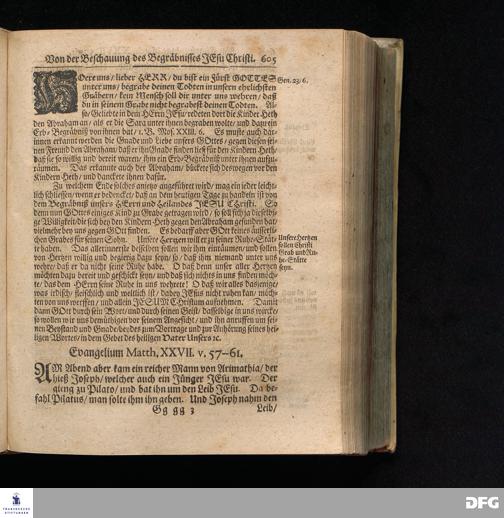 Von der Beschauung des Begräbnisses JEsu Christi. 605
HOere uns/ lieber HERR/ du bist ein Fürst GOTTES
unter uns/ begrabe deinen Todten in unsern ehrlichsten
Gräbern/ kein Mensch soll dir unter uns wehren/ daß
du in seinem Grabe nicht begrabest deinen Todten. Al-
so/ Geliebte in dem HErrn JEsu/ redeten dort die Kinder Heth
den Abraham an/ als er die Sara unter ihnen begraben wolte/ und dazu ein
Erb-Begräbniß von ihnen bat/ 1. B. Mos. XXIII. 6. Es muste auch dar-
innen erkannt werden die Gnade und Liebe unsers GOttes/ gegen diesen sei-
nen Freund den Abraham/ daß er ihn Gnade finden ließ für den Kindern Heth/
daß sie so willig und bereit waren/ ihm ein Erb-Begräbniß unter ihnen aufzu-
räumen. Das erkannte auch der Abraham/ bückete sich deswegen vor den
Kindern Heth/ und danckete ihnen dafür.
Zu welchem Ende solches anietzo angeführet wird/ mag ein ieder leicht-
lich schliessen/ wenn er bedencket/ daß an dem heutigen Tage zu handeln ist von
dem Begräbniß unsers HErrn und Heilandes JESU Christi. So
denn nun GOttes einiges Kind zu Grabe getragen wird/ so soll sich ja dieselbi-
ge Willigkeit/ die sich bey den Kindern Heth gegen den Abraham gefunden hat/
vielmehr bey uns gegen GOtt finden. Es bedarff aber GOtt keines äusserli-
chen Grabes für seinen Sohn. Unsere Hertzen will er zu seiner Ruhe-Stät-
te haben. Das allerinnerste derselben sollen wir ihm einräumen/ und sollen
von Hertzen willig und begierig dazu seyn/ so/ daß ihm niemand unter uns
wehre/ daß er da nicht seine Ruhe habe. O daß denn unser aller Hertzen
möchten dazu bereit und geschickt seyn/ und daß sich nichts in uns finden möch-
te/ das dem HErrn seine Ruhe in uns wehrete! O daß wir alles dasjenige/
was irdisch/ fleischlich und weltlich ist/ dabey JEsus nicht ruhen kan/ möch-
ten von uns werffen/ und allein JESUM Christum aufnehmen. Damit
dann GOtt durch sein Wort/ und durch seinen Geist/ dasselbige in uns wircke/
so wollen wir uns demüthigen vor seinem Angesicht/ und ihn anruffen um sei-
nen Beystand und Gnade/ beydes zum Vortrage und zur Anhörung seines hei-
ligen Wortes/ in dem Gebet des heiligen Vater Unsers ꝛc.
Gen. 23/ 6.
Unsere Hertzen
sollen Christi
Grab und Ru-
he-Stätte
seyn.
Evangelium Matth. XXVII. v. 57-61.
AM Abend aber kam ein reicher Mann von Arimathia/ der
hieß Joseph/ welcher auch ein Jünger JEsu war. Der
gieng zu Pilato/ und bat ihn um den Leib JEsu. Da be-
fahl Pilatus/ man solte ihm ihn geben. Und Joseph nahm den
Gg gg 3
Leib/
FRANCKESCHE
STIFTUNGEN
DFG